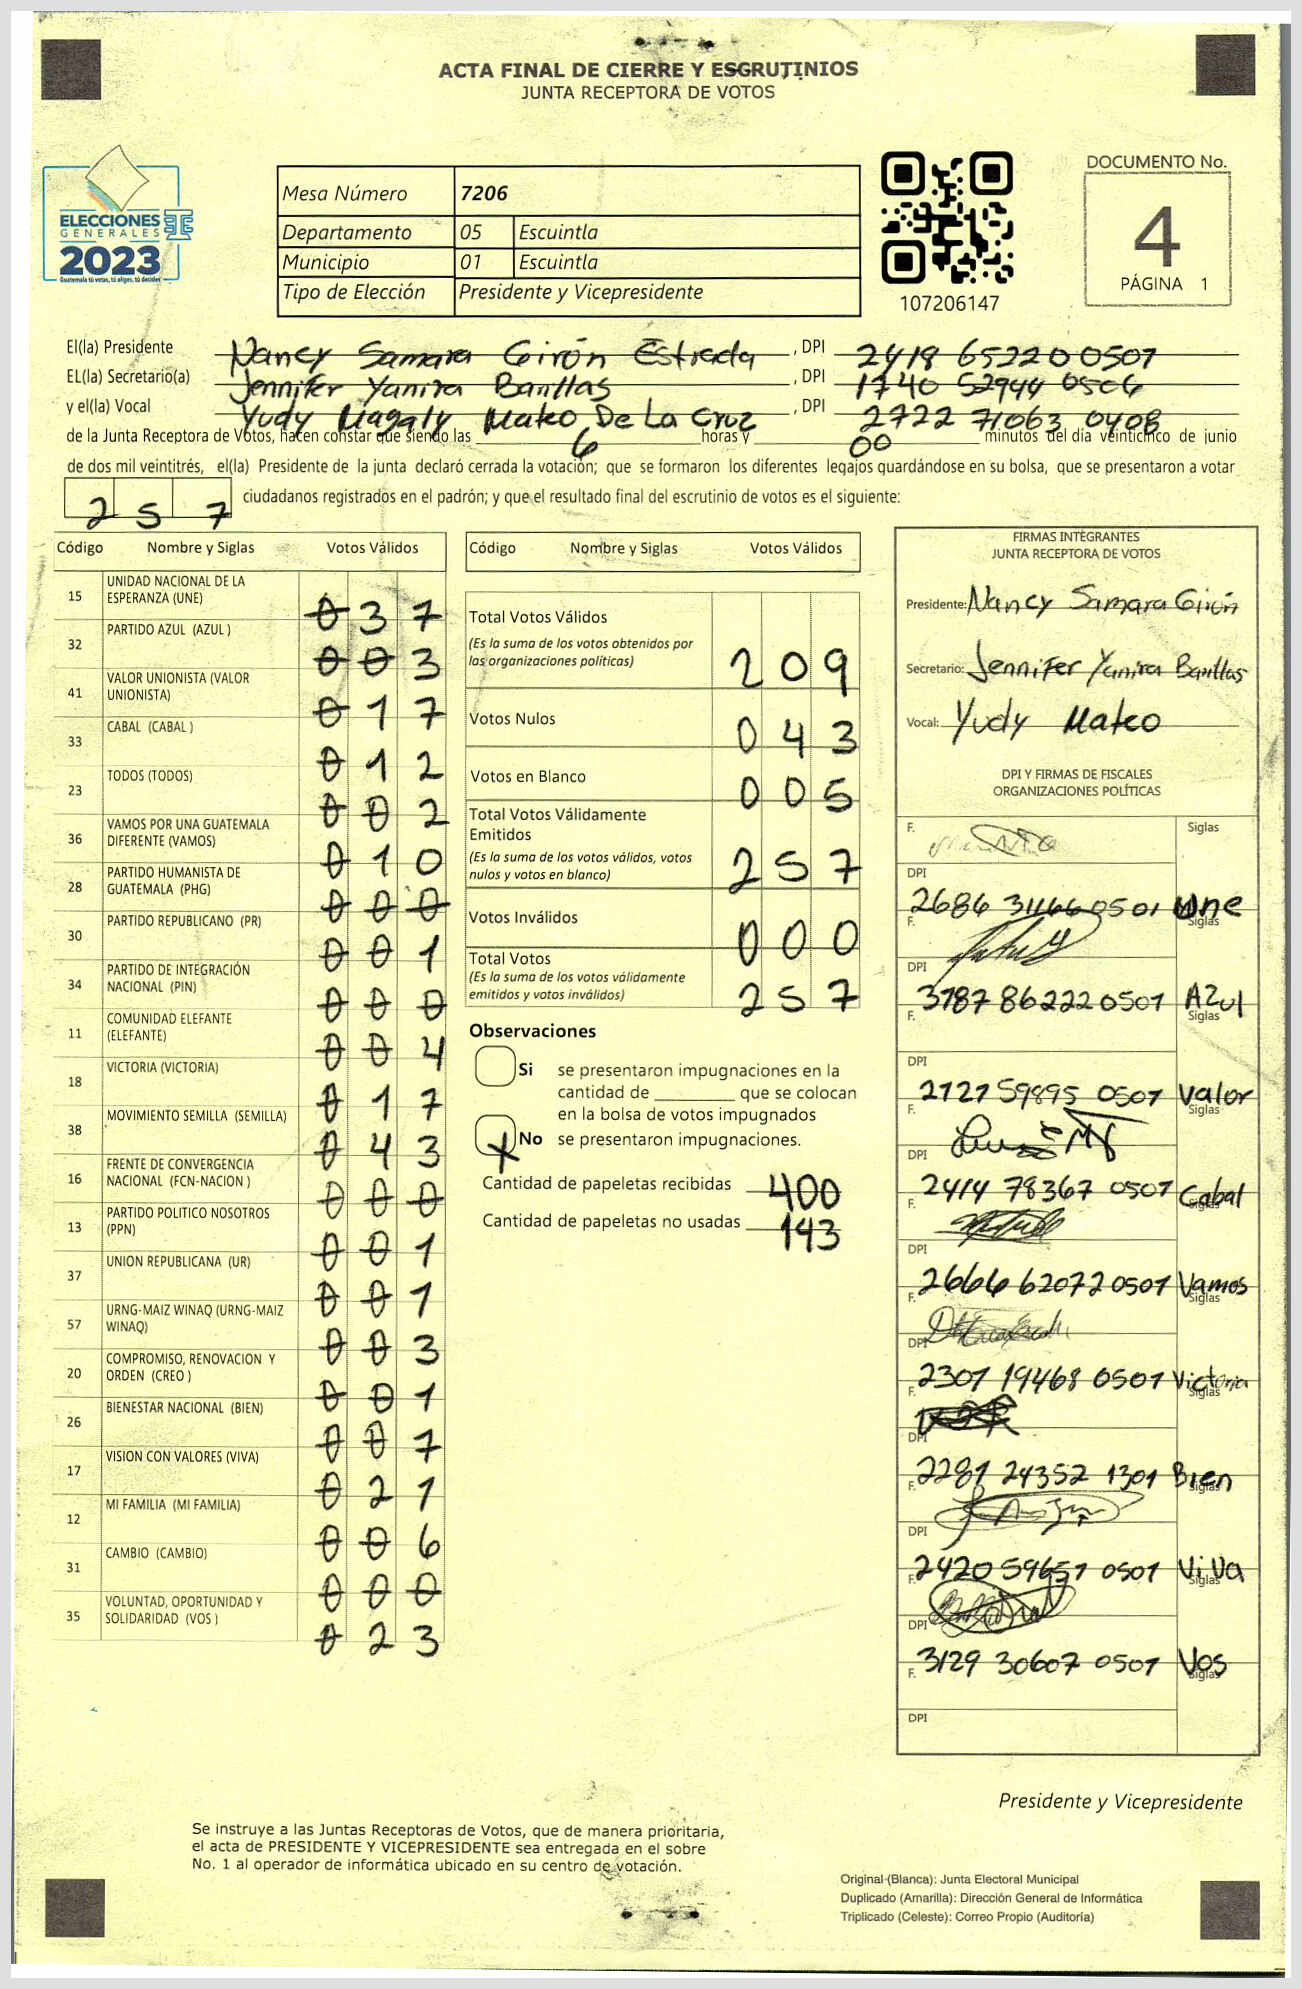 ACTA FINAL DE CIERRE Y ESCRUTINIOS
JUNTA RECEPTORA DE VOTOS
ELECCIONES
GENERALES
2023
Guatemala tú votas, tú eliges, tú decides
Mesa Número 7206
Departamento 05 Escuintla
Municipio 01 Escuintla
Tipo de Elección Presidente y Vicepresidente
107206147
DOCUMENTO No.
4
PÁGINA 1
El(la) Presidente Nancy Samara Girón Estrada , DPI 2418 65220 0507
EL(la) Secretario(a) Jennifer Yanira Barillas , DPI 1740 52944 0506
y el(la) Vocal Yudy Magaly Mateo De La Cruz , DPI 2722 71063 0408
de la Junta Receptora de Votos, hacen constar que siendo las 6 horas y 00 minutos del día veinticinco de junio
de dos mil veintitrés, el(la) Presidente de la junta declaró cerrada la votación; que se formaron los diferentes legajos guardándose en su bolsa, que se presentaron a votar
257 ciudadanos registrados en el padrón; y que el resultado final del escrutinio de votos es el siguiente:
Código Nombre y Siglas Votos Válidos
15 UNIDAD NACIONAL DE LA ESPERANZA (UNE) 0 3 7
32 PARTIDO AZUL (AZUL ) 0 0 3
41 VALOR UNIONISTA (VALOR UNIONISTA) 0 1 7
33 CABAL (CABAL ) 0 1 2
23 TODOS (TODOS) 0 0 2
36 VAMOS POR UNA GUATEMALA DIFERENTE (VAMOS) 0 1 0
28 PARTIDO HUMANISTA DE GUATEMALA (PHG) 0 0 0
30 PARTIDO REPUBLICANO (PR) 0 0 1
34 PARTIDO DE INTEGRACIÓN NACIONAL (PIN) 0 0 0
11 COMUNIDAD ELEFANTE (ELEFANTE) 0 0 4
18 VICTORIA (VICTORIA) 0 1 7
38 MOVIMIENTO SEMILLA (SEMILLA) 0 4 3
16 FRENTE DE CONVERGENCIA NACIONAL (FCN-NACION ) 0 0 0
13 PARTIDO POLITICO NOSOTROS (PPN) 0 0 1
37 UNION REPUBLICANA (UR) 0 0 1
57 URNG-MAIZ WINAQ (URNG-MAIZ WINAQ) 0 0 3
20 COMPROMISO, RENOVACION Y ORDEN (CREO ) 0 0 1
26 BIENESTAR NACIONAL (BIEN) 0 0 7
17 VISION CON VALORES (VIVA) 0 2 1
12 MI FAMILIA (MI FAMILIA) 0 0 6
31 CAMBIO (CAMBIO) 0 0 0
35 VOLUNTAD, OPORTUNIDAD Y SOLIDARIDAD (VOS ) 0 2 3
Código Nombre y Siglas Votos Válidos
Total Votos Válidos
(Es la suma de los votos obtenidos por
las organizaciones políticas) 2 0 9
Votos Nulos 0 4 3
Votos en Blanco 0 0 5
Total Votos Válidamente
Emitidos
(Es la suma de los votos válidos, votos
nulos y votos en blanco) 2 5 7
Votos Inválidos 0 0 0
Total Votos
(Es la suma de los votos válidamente
emitidos y votos inválidos) 2 5 7
Observaciones
Si se presentaron impugnaciones en la
cantidad de ________ que se colocan
en la bolsa de votos impugnados
X No se presentaron impugnaciones.
Cantidad de papeletas recibidas 400
Cantidad de papeletas no usadas 143
FIRMAS INTEGRANTES
JUNTA RECEPTORA DE VOTOS
Presidente: Nancy Samara Girón
Secretario: Jennifer Yanira Barillas
Vocal: Yudy Mateo
DPI Y FIRMAS DE FISCALES
ORGANIZACIONES POLÍTICAS
F. Siglas
DPI 2686 31166 0501 Une
F. Siglas
DPI 3787 86222 0507 Azul
F. Siglas
DPI 2727 59895 0507 Valor
F. Siglas
DPI 2414 78367 0507 Cabal
F. Siglas
DPI 2666 62072 0501 Vamos
F. Siglas
DPI 2307 19468 0501 Victoria
F. Siglas
DPI 2281 24352 1301 Bien
F. Siglas
DPI 2420 59657 0501 ViVa
F. Siglas
DPI 3129 30607 0507 Vos
F. Siglas
DPI
Presidente y Vicepresidente
Se instruye a las Juntas Receptoras de Votos, que de manera prioritaria,
el acta de PRESIDENTE Y VICEPRESIDENTE sea entregada en el sobre
No. 1 al operador de informática ubicado en su centro de votación.
Original (Blanca): Junta Electoral Municipal
Duplicado (Amarilla): Dirección General de Informática
Triplicado (Celeste): Correo Propio (Auditoría)